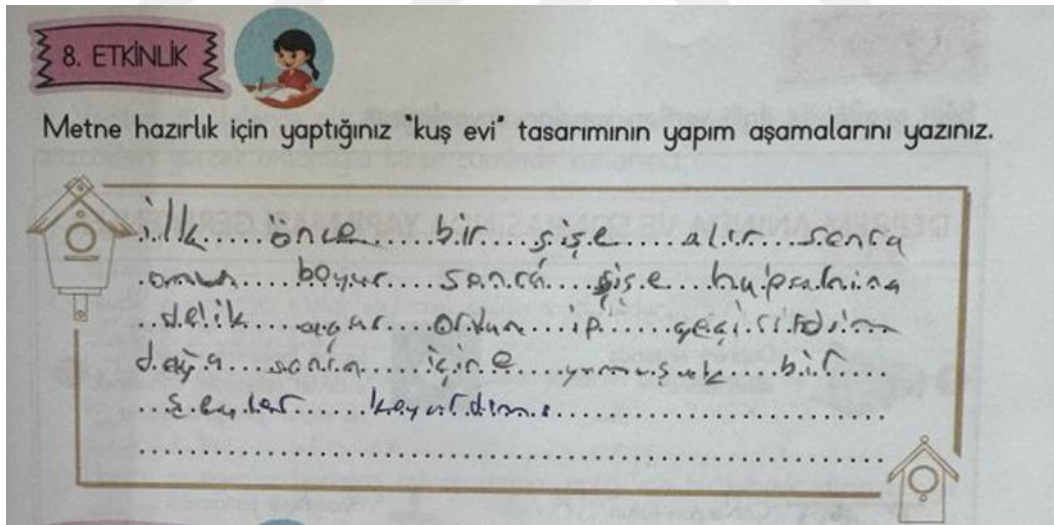 8. ETKİNLİK
Metne hazırlık için yaptığınız "kuş evi" tasarımının yapım aşamalarını yazınız.
ilk önce bir şişe alır sonra
onun boyur sonra şişe
delik açar ordan ip
dağa sonra içine yumuşak bir
şeyler koyurdım.